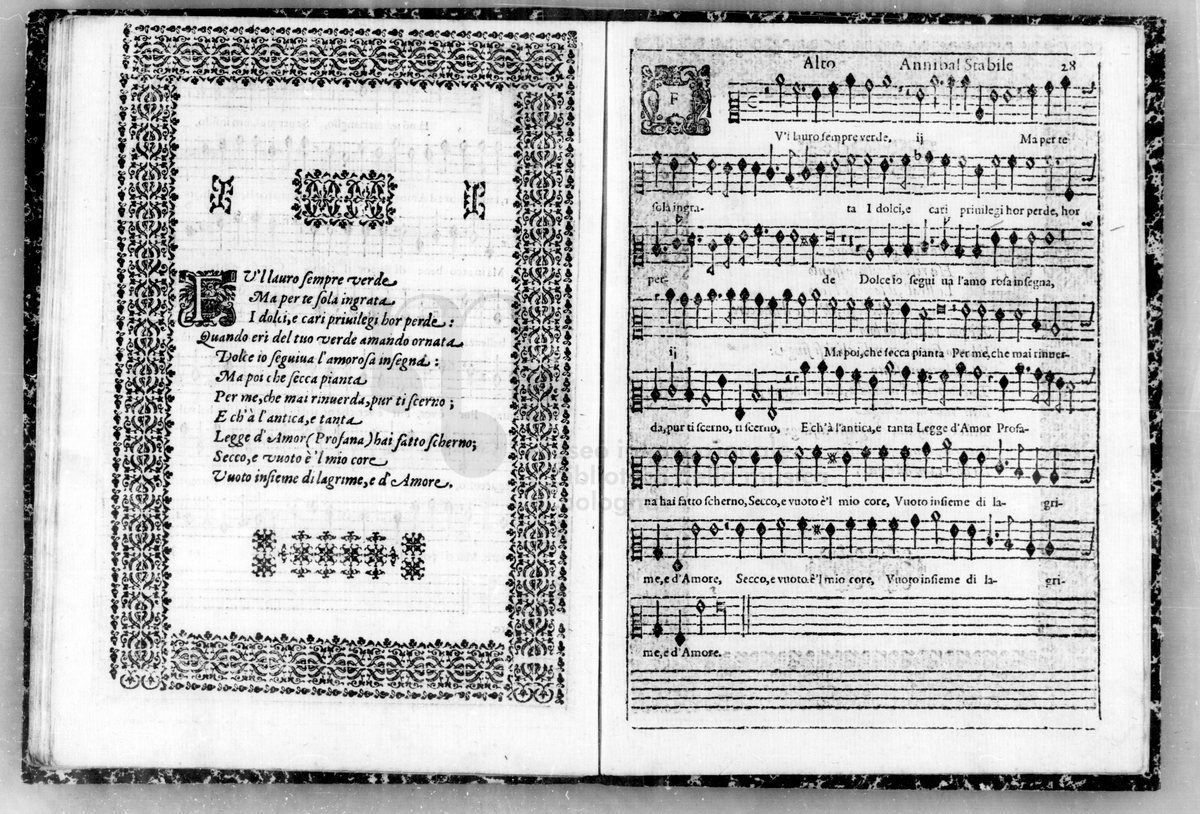 FU'l lauro sempre verde
Ma per te sola ingrata
I dolci, e cari priuilegi hor perde :
Quando eri del tuo verde amando ornata
Dolce io seguiua l'amorosa insegna :
Ma poi che secca pianta
Per me, che mai rinuerda, pur ti scerno ;
E ch'à l'antica, e tanta
Legge d'Amor (Profana) hai fatto scherno;
Secco, e vuoto è'l mio core
Vuoto insieme di lagrime, e d'Amore.
Alto Annibal Stabile 28
FV'l lauro sempre verde, ij Ma per te
sola ingra- ta I dolci, e cari priuilegi hor perde, hor
per- de Dolce io segui ua l'amo rosa insegna,
ij Ma poi, che secca pianta Per me, che mai rinuer-
da, pur ti scerno, ti scerno, E ch'à l'antica, e tanta Legge d'Amor Profa-
na hai fatto scherno, Secco, e vuoto è'l mio core, Vuoto insieme di la- gri-
me, e d'Amore, Secco, e vuoto è'l mio core, Vuoto insieme di la- gri-
me, e d'Amore.